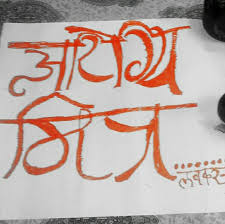 आरोग्य
मित्र
........
लवकर